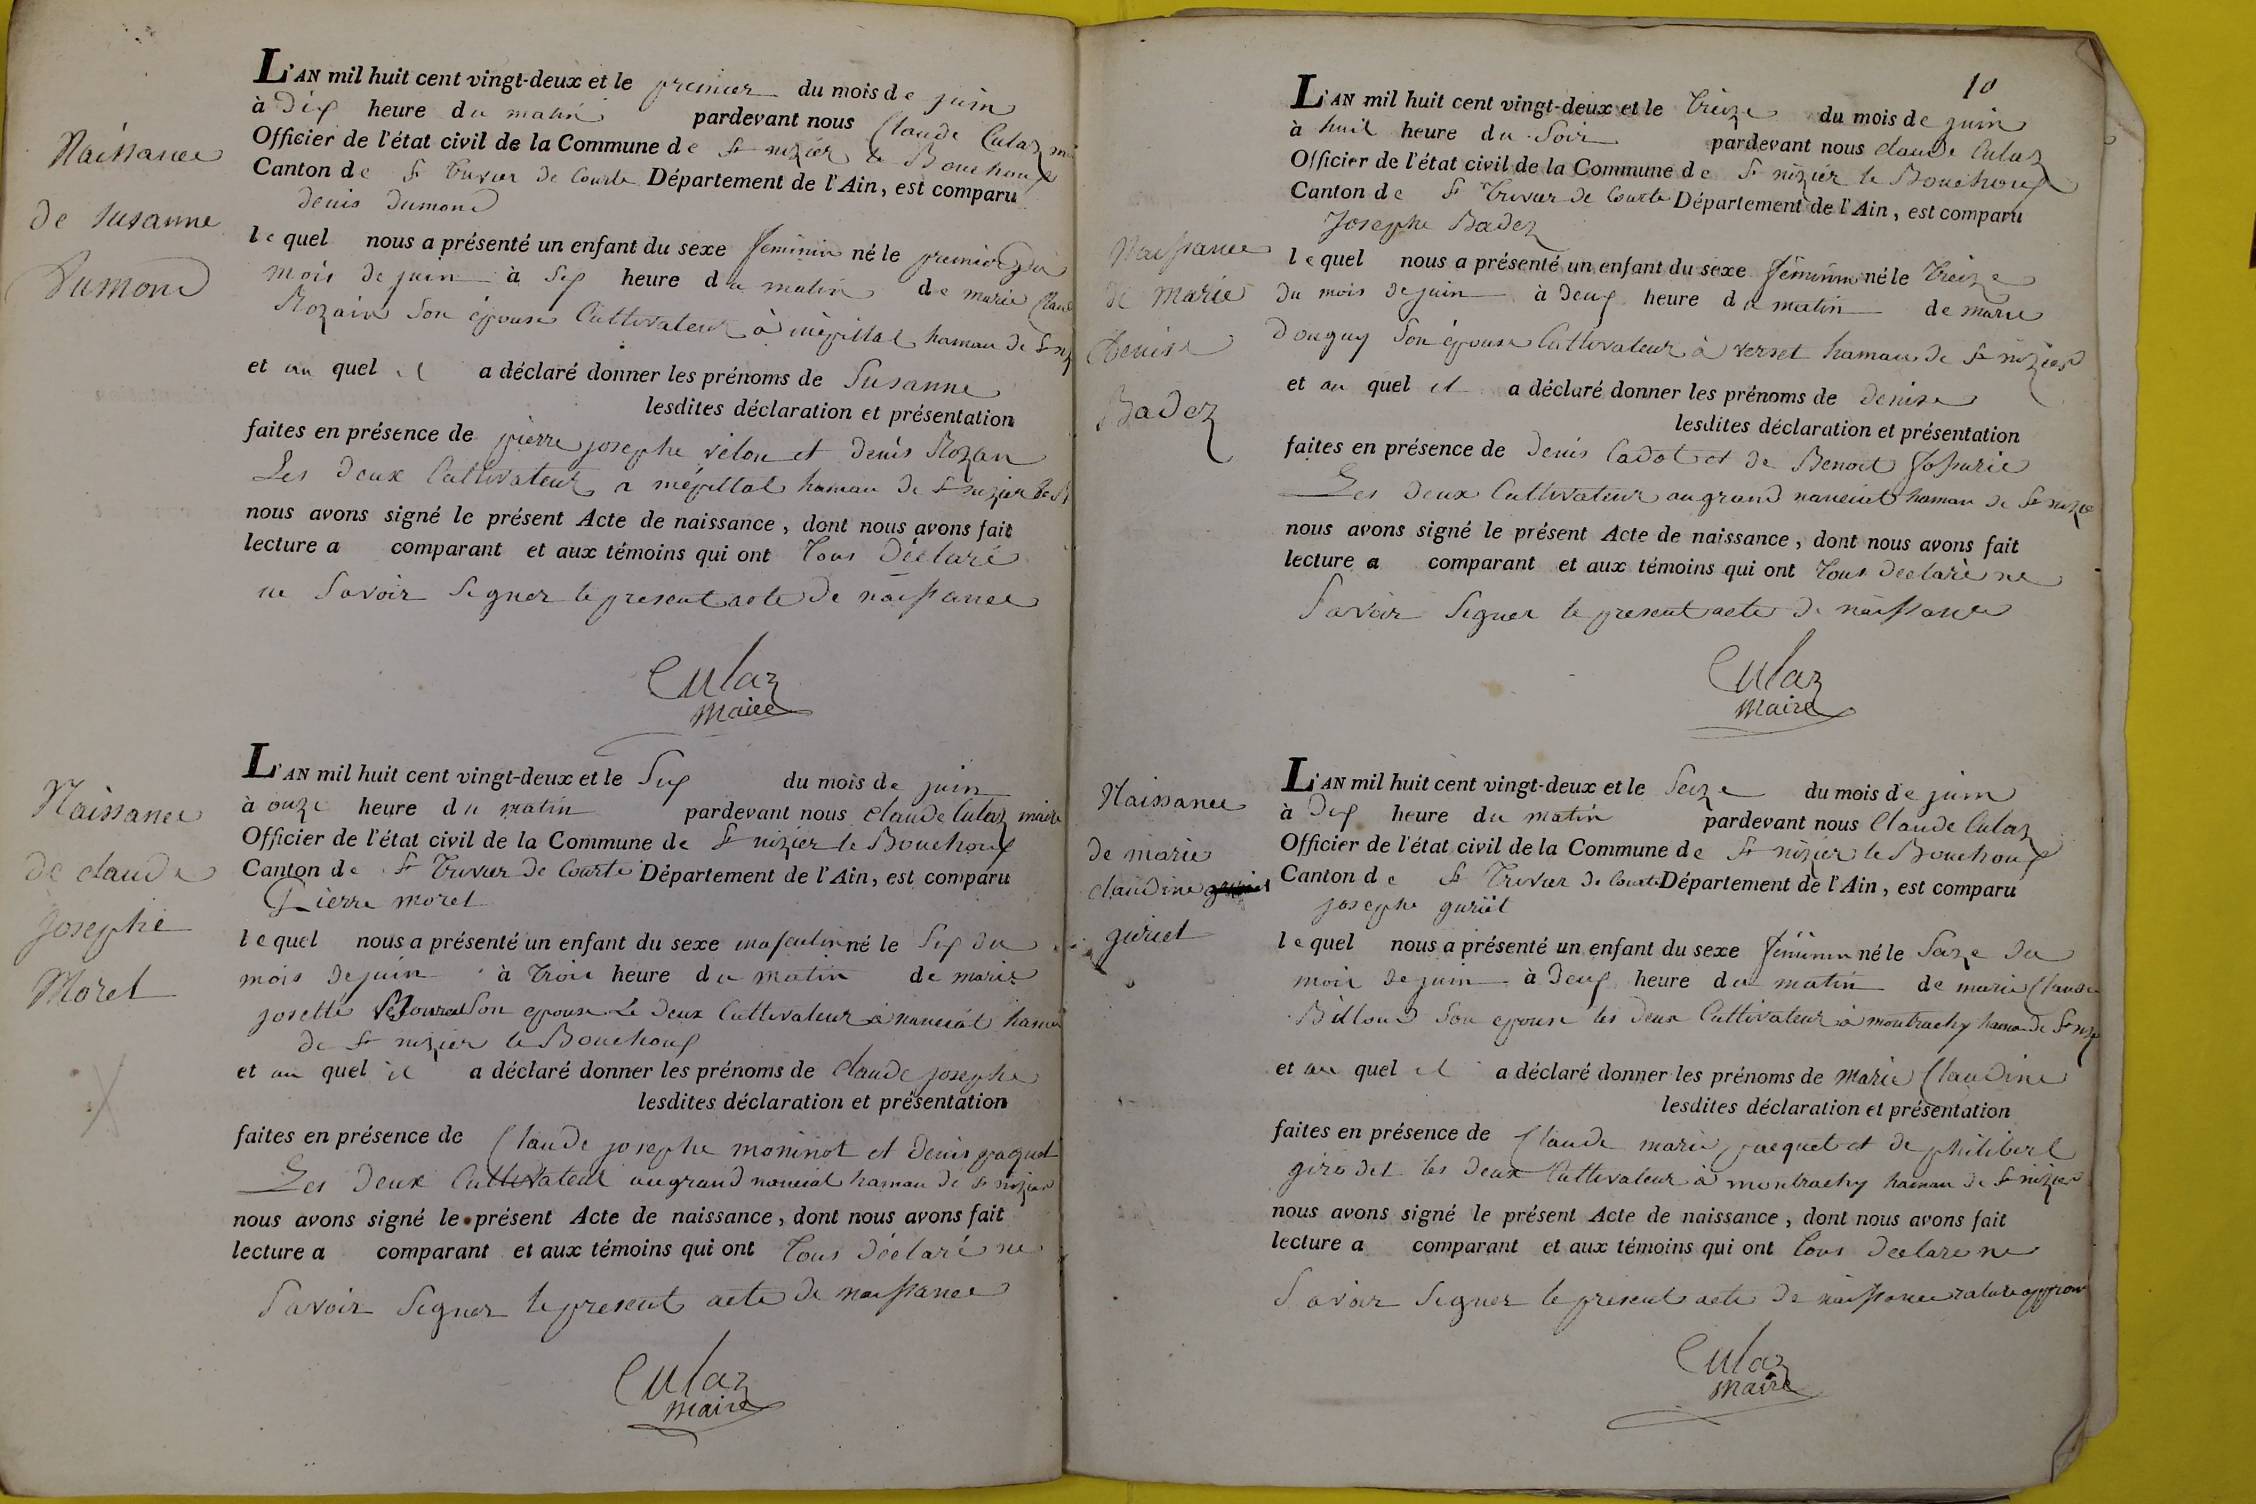 Naissance
de susanne
Dumond
L'AN mil huit cent vingt-deux et le premier du mois de juin
à dix heure du matin pardevant nous Claude Culaz
Officier de l'état civil de la Commune de St nizier le Bouchoux
Canton de St Trivier de Courte Département de l'Ain, est comparu
denis dumond
lequel nous a présenté un enfant du sexe feminin né le premier du
mois de juin à six heure du matin de marie Claud
Rozain Son épouse Cultivateur à mépillat hamau de St niz
et au quel il a déclaré donner les prénoms de Susanne
lesdites déclaration et présentation
faites en présence de pierre josephe vélon et denis Rozan
Les deux Cultivateur a mépillat hamau de St nizier
nous avons signé le présent Acte de naissance, dont nous avons fait
lecture a comparant et aux témoins qui ont Tous déclaré
ne Savoir Signer le present acte de naissance
Culaz
maire
Naissance
de claude
josephe
Morel
L'AN mil huit cent vingt-deux et le Six du mois de juin
à onze heure du matin pardevant nous claude Culaz maire
Officier de l'état civil de la Commune de St nizier le Bouchoux
Canton de St Trivier de Courte Département de l'Ain, est comparu
Pierre morel
lequel nous a présenté un enfant du sexe masculin né le Six du
mois de juin à Trois heure du matin de marie
josette Son epouse Le deux Cultivateur à nanciat hamau
de St nizier le Bouchoux
et au quel il a déclaré donner les prénoms de claude josephe
lesdites déclaration et présentation
faites en présence de Claude josephe moninot et denis paquet
Les deux Cultivateur au grand nanciat hamau de St nizier
nous avons signé le présent Acte de naissance, dont nous avons fait
lecture a comparant et aux témoins qui ont Tous déclaré ne
Savoir Signer le present acte de naissance
Culaz
maire
10
Naissance
de marie
Denise
Badez
L'AN mil huit cent vingt-deux et le Treize du mois de juin
à huit heure du Soir pardevant nous claude Culaz
Officier de l'état civil de la Commune de St nizier le Bouchoux
Canton de St Trivier de Courte Département de l'Ain, est comparu
Josephe Badez
lequel nous a présenté un enfant du sexe féminin né le Treize
du mois de juin à deux heure du matin de marie
Donguy Son épouse Cultivateur à verset hamau de St nizier
et au quel il a déclaré donner les prénoms de denise
lesdites déclaration et présentation
faites en présence de denis Cadot et de Benoit
Les deux Cultivateur au grand nanciat hamau de St nizie
nous avons signé le présent Acte de naissance, dont nous avons fait
lecture a comparant et aux témoins qui ont Tous déclaré ne
Savoir Signer le present acte de naissance
Culaz
Maire
Naissance
de marie
claudine
guriet
L'AN mil huit cent vingt-deux et le Seize du mois de juin
à Dix heure du matin pardevant nous Claude Culaz
Officier de l'état civil de la Commune de St nizier le Bouchoux
Canton de St Trivier de Courte Département de l'Ain, est comparu
josephe guriet
lequel nous a présenté un enfant du sexe féminin né le Saize du
mois de juin à deux heure du matin de marie Claude
Billoud Son epouse les deux Cultivateur à montrachy hamau de St nizie
et au quel il a déclaré donner les prénoms de Marie Claudine
lesdites déclaration et présentation
faites en présence de Claude marie jacquet et de philibert
girodet les deux Cultivateur à montrachy hamau de St nizier
nous avons signé le présent Acte de naissance, dont nous avons fait
lecture a comparant et aux témoins qui ont Tous declaré ne
Savoir Signer le present acte de naissance rature approu
Culaz
Maire